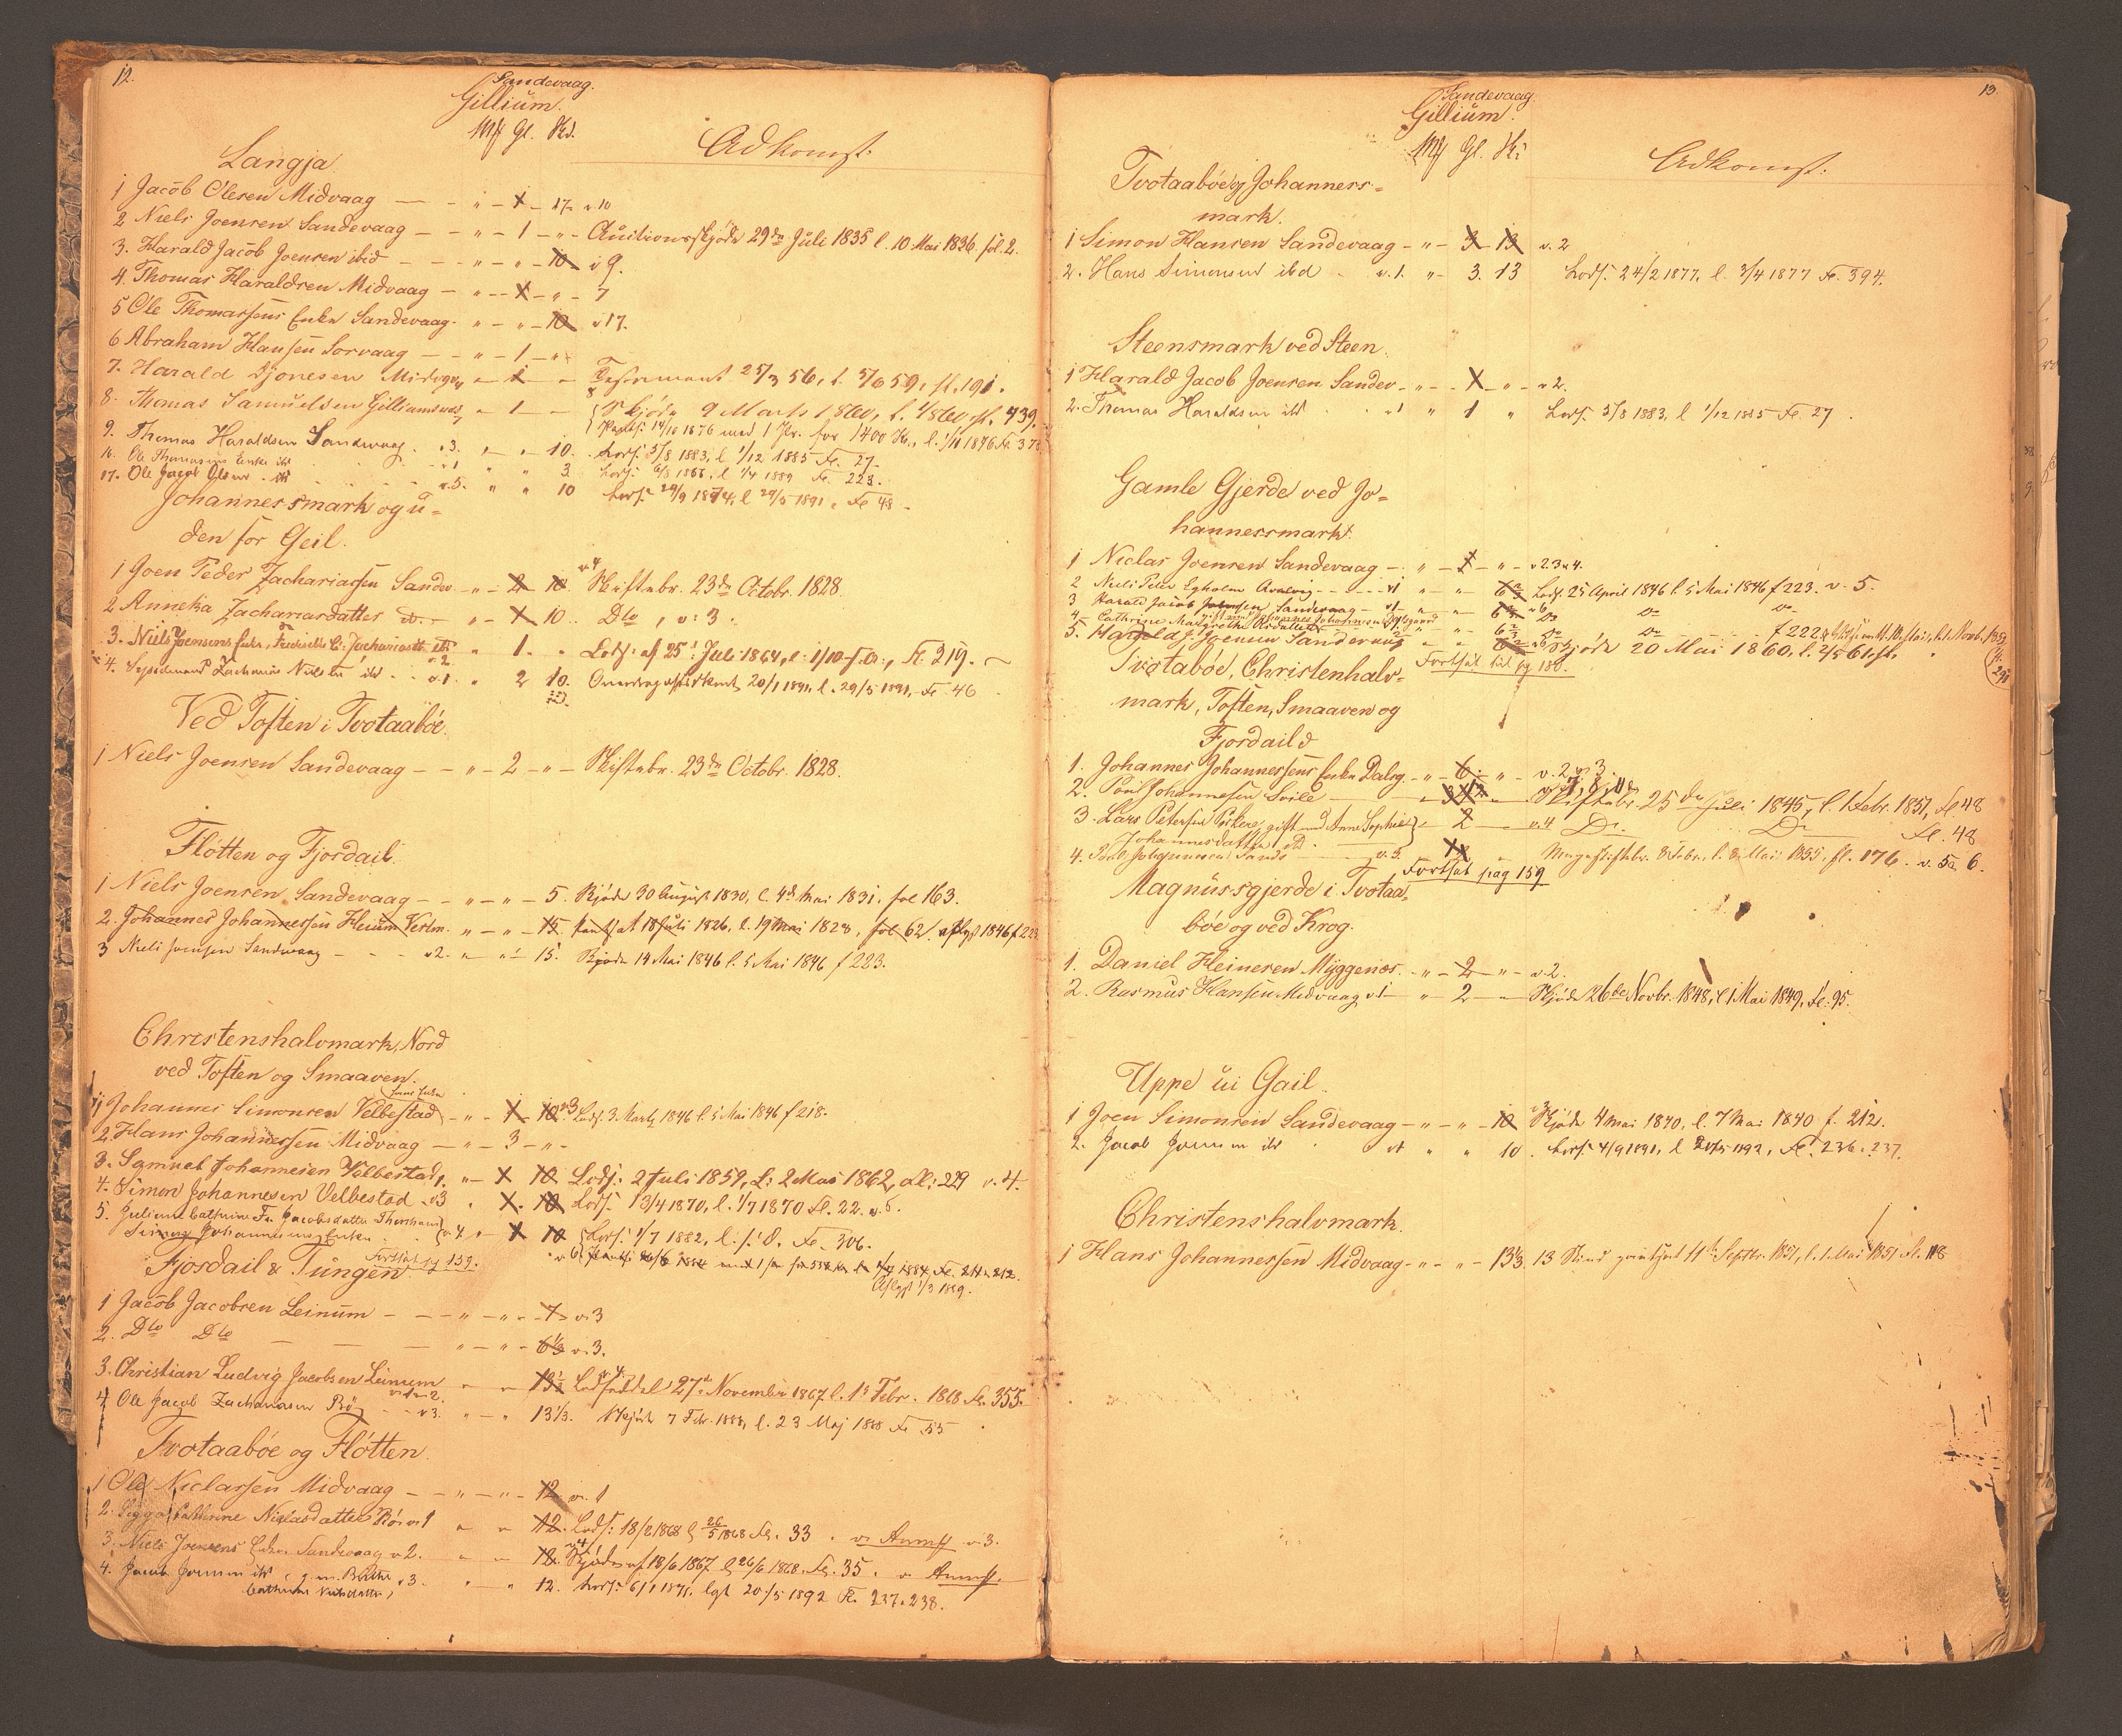 12.
Sandevaag.
Gillium.
Mk Gl. Sk.
Adkomst.
Langja
1 Jacob Olesen Midvaag — - " - 1 - 17 - v 10
2 Niels Joensen Sandevaag — - " - 1 - " - Auctionsskjøde 29de Juli 1835 l. 10 Mai 1836. fol. 2.
3. Harald Jacob Joensen ibid — - - " - " - 10 v 9.
4 Thomas Haraldsen Midvaag — " - 1 - " - 7
5 Ole Thomassens Enke Sandevaag - " - " - 10 v 17.
6 Abraham Hansen Sorvaag — - " - 1 - "
7. Harald Djonesen Midvaag " - 1 - Testament 25/3 56, l. 5/6 59, fl. 191.
8. Thomas Samuelsen Gilliumsnæs " - 1 — Skjøde 9 Marts 1860, l. 1860 fl. 439.
Pants. 14/10 1876 med 1 Pr. for 1400 Kr., l. 1/11 1876 Fo. 37
9. Thomas Haraldsen Sandevaag v 3. " - " - 10. Lods. 5/8 1883, l 1/12 1885 Fo. 27.
10. Ole Thomasens Enke ibd v 1 " " 3 Lods. 6/8 1888, l 1/4 1889 Fo. 223.
17. Ole Jacob Olsen ibd v. 5. " " 10 Lods. 29/9 1874, l 29/5 1891, Fo 48
Johannessmark og u=
den for Geil.
1 Joen Peder Zachariasen Sandev - " - 2 10 v 4 Skiftebr. 23de Octobr. 1828.
2 Anneka Zachariasdatter do. — " - 1 10 . Dto , v: 3.
3. Niels Joensens Enke, Fredrikke C: Zachariasdt. ib. " 1. " Lods: af 25 Juli 1864, l: 1/10 s. A:, Fo. 319.
4. Sysselmand Zacharias Nielsen ibd. v. 1. " 2 10. Overdragelsesdokument 20/1 1891, l. 29/5 1891, Fo 46
Ved Toften i Tvotaabøe.
1 Niels Joensen Sandevaag — - " - 2 - " - Skiftebr. 23de Octobr. 1828.
Fløtten og Fjordail.
1 Niels Joensen Sandevaag — - " - " - 5. Skjøde 30 August 1830, l. 4de Mai 1831, fol 163.
2. Johannes Johannessen Heium Vestm. " - " - 15 Pantsat 18 Juli 1826, l. 19 Mai 1828, fol 62. aflyst 1846 f 223
3 Niels Joensen Sandevaag - - - v 2. " " 15. Skjøde 14 Mai 1846 l. 5 Mai 1846 f 223.
Christenshalvmark, Nord
ved Toften og Smaaven.
1 Johannes Simonsen Velbestad - " - 1 10 v 3 Lods. 3. Marts 1846 l. 5 Mai 1846 f 218.
2. Hans Johannessen Midvaag — " - 3 - " -
3. Samuel Johannesen Velbestad v 1. " - 1 10 Lods: 2 Juli 1859, L: 2 Mai 1862, fl: 229 v. 4.
4. Simon Johannesen Velbestad v 3 . 1. 10 Lods. 13/4 1870, l. 1/7 1870 Fl. 22. v. 5.
5. Juliane Cathrine Fr. Jacobsdatter Thorshavn
Simon Johannesens Enke v 4 " 1 10 Lods. 1/7 1882, l. s. D. Fo. 306.
Aflyst 1/3 1889.
Fjordail & Tungen Fortsat pg 159.
1 Jacob Jacobsen Leinum — - — " - " - 7 v. 3
2. Dto Dto — — — " - " - 6 1/3 v. 3.
3. Christian Ludvig Jacobsen Leinum v 1 v 2. " " 13 1/3 v 4 Lodseddel 27de November 1867 l. 13 Febr. 1868 Fo. 355.
4 Ole Jacob Zachariasen Bø - - v 3. " - " 13 1/3. Skjøde 7 Febr. 1888, l. 23 Maj 1888 Fo 55
Tvotaabøe og Fløtten.
1 Ole Niclassen Midvaag — - " - " - 12 v. 1
2. Sigga Cathrine Niclasdatter Bø v 1 " " 12. Lods: 18/2 1868 l 26/5 1868 Fo. 33. v 3.
3. Niels Joensens Enke Sandevaag v 2. " " 12. Skjøde af 18/6 1867 l 26/6 1868. Fo. 35.
4. Jacob Joensen ibd g. m. Birthe
Cathrine Nielsdatter v 3. " " 12. Lods. 6/1 1891, lgl 20/5 1892 Fo. 237-238.
13.
Sandevaag.
Gillium.
Mk Gl. Sk:
Adkomst.
Tvotaabøe og Johannes=
mark.
1 Simon Hansen Sandevaag - " - 3 13 v. 2
2. Hans Simonsen ibd - v. 1. " - 3. 13 Lods. 24/2 1877, l. 3/4 1877 Fo. 394.
Steensmark ved Steen.
1 Harald Jacob Joensen Sandev - " - 1 - " - v 2.
2. Thomas Haraldsen ibd . . v 1 " 1 " Lods. 5/8 1883, l 1/12 1885 Fo. 27.
Gamle Gjerde ved Jo=
hannessmark.
1 Niclas Joensen Sandevaag - " - 1 - " - v 2 3 v 4.
2 Niels Peter Egholm Qvalvig - - - v 1 " - " - 6 2/3 Lods. 25 April 1846 l. 5 Mai 1846 f 223. v. 5.
3 Harald Jacob Joensen Sandevaag — v 1 - " - " 6 2/3 v 6 Do Do Do
4 Cathrine Margrethe Olsdatter gift med Johannes Johannesen " " 6 2/3 Do Do f 222
5. Harald J. Joensen Sandevaag " " 6 2/3 v 6 Skjøde 20 Mai 1860, l. 2/5 61 fl.
Fortsat til pg 180.
Tvotabøe, Christenhalv=
mark, Toften, Smaaven og
Fjordail
1. Johannes Johannessens Enke Dalsg. - " - 6. " - v. 2 v 3
2. Poul Johannesen Svile — Skiftebr. 25de Juli 1845, l. 1 Febr. 1851, Fl 48
3. Lars Petersen Porkere gift med Anne Sophie
Johannesdatter ibd. " 2 — v. 4 Do. Do fl. 48
4. Poul Johannesen Sands — v. 3. Mageskiftebr. 8 Febr. l. 8 Mai 1855, fl. 176. v. 5 a 6.
Fortsat pag 159
Magnussgjerde i Tvotaa=
bøe og ved Krog.
1. Daniel Heinesen Myggenæs - " - 2 - " - v. 2.
2. Rasmus Hansen Midvaag v 1 - " - 2 — Skjøde 26de Novbr. 1848, l 1 Mai 1849, Fl: 95.
Uppe ui Gail.
1 Joen Simonsen Sandevaag - " - " - 10 v 2 Skjøde 4 Mai 1840, l. 7 Mai 1840 f. 212.
2. Jacob Joensen ibd v 1 " " 10. Lods. 4/9 1891, l 20/5 1892, Fo. 236-237.
Christenshalvmark.
1 Hans Johannessen Midvaag - " - " - 13 1/3. 13 Skind pantsat 11te Septbr. 1851, l. 1. Mai 1851 Fl. 118